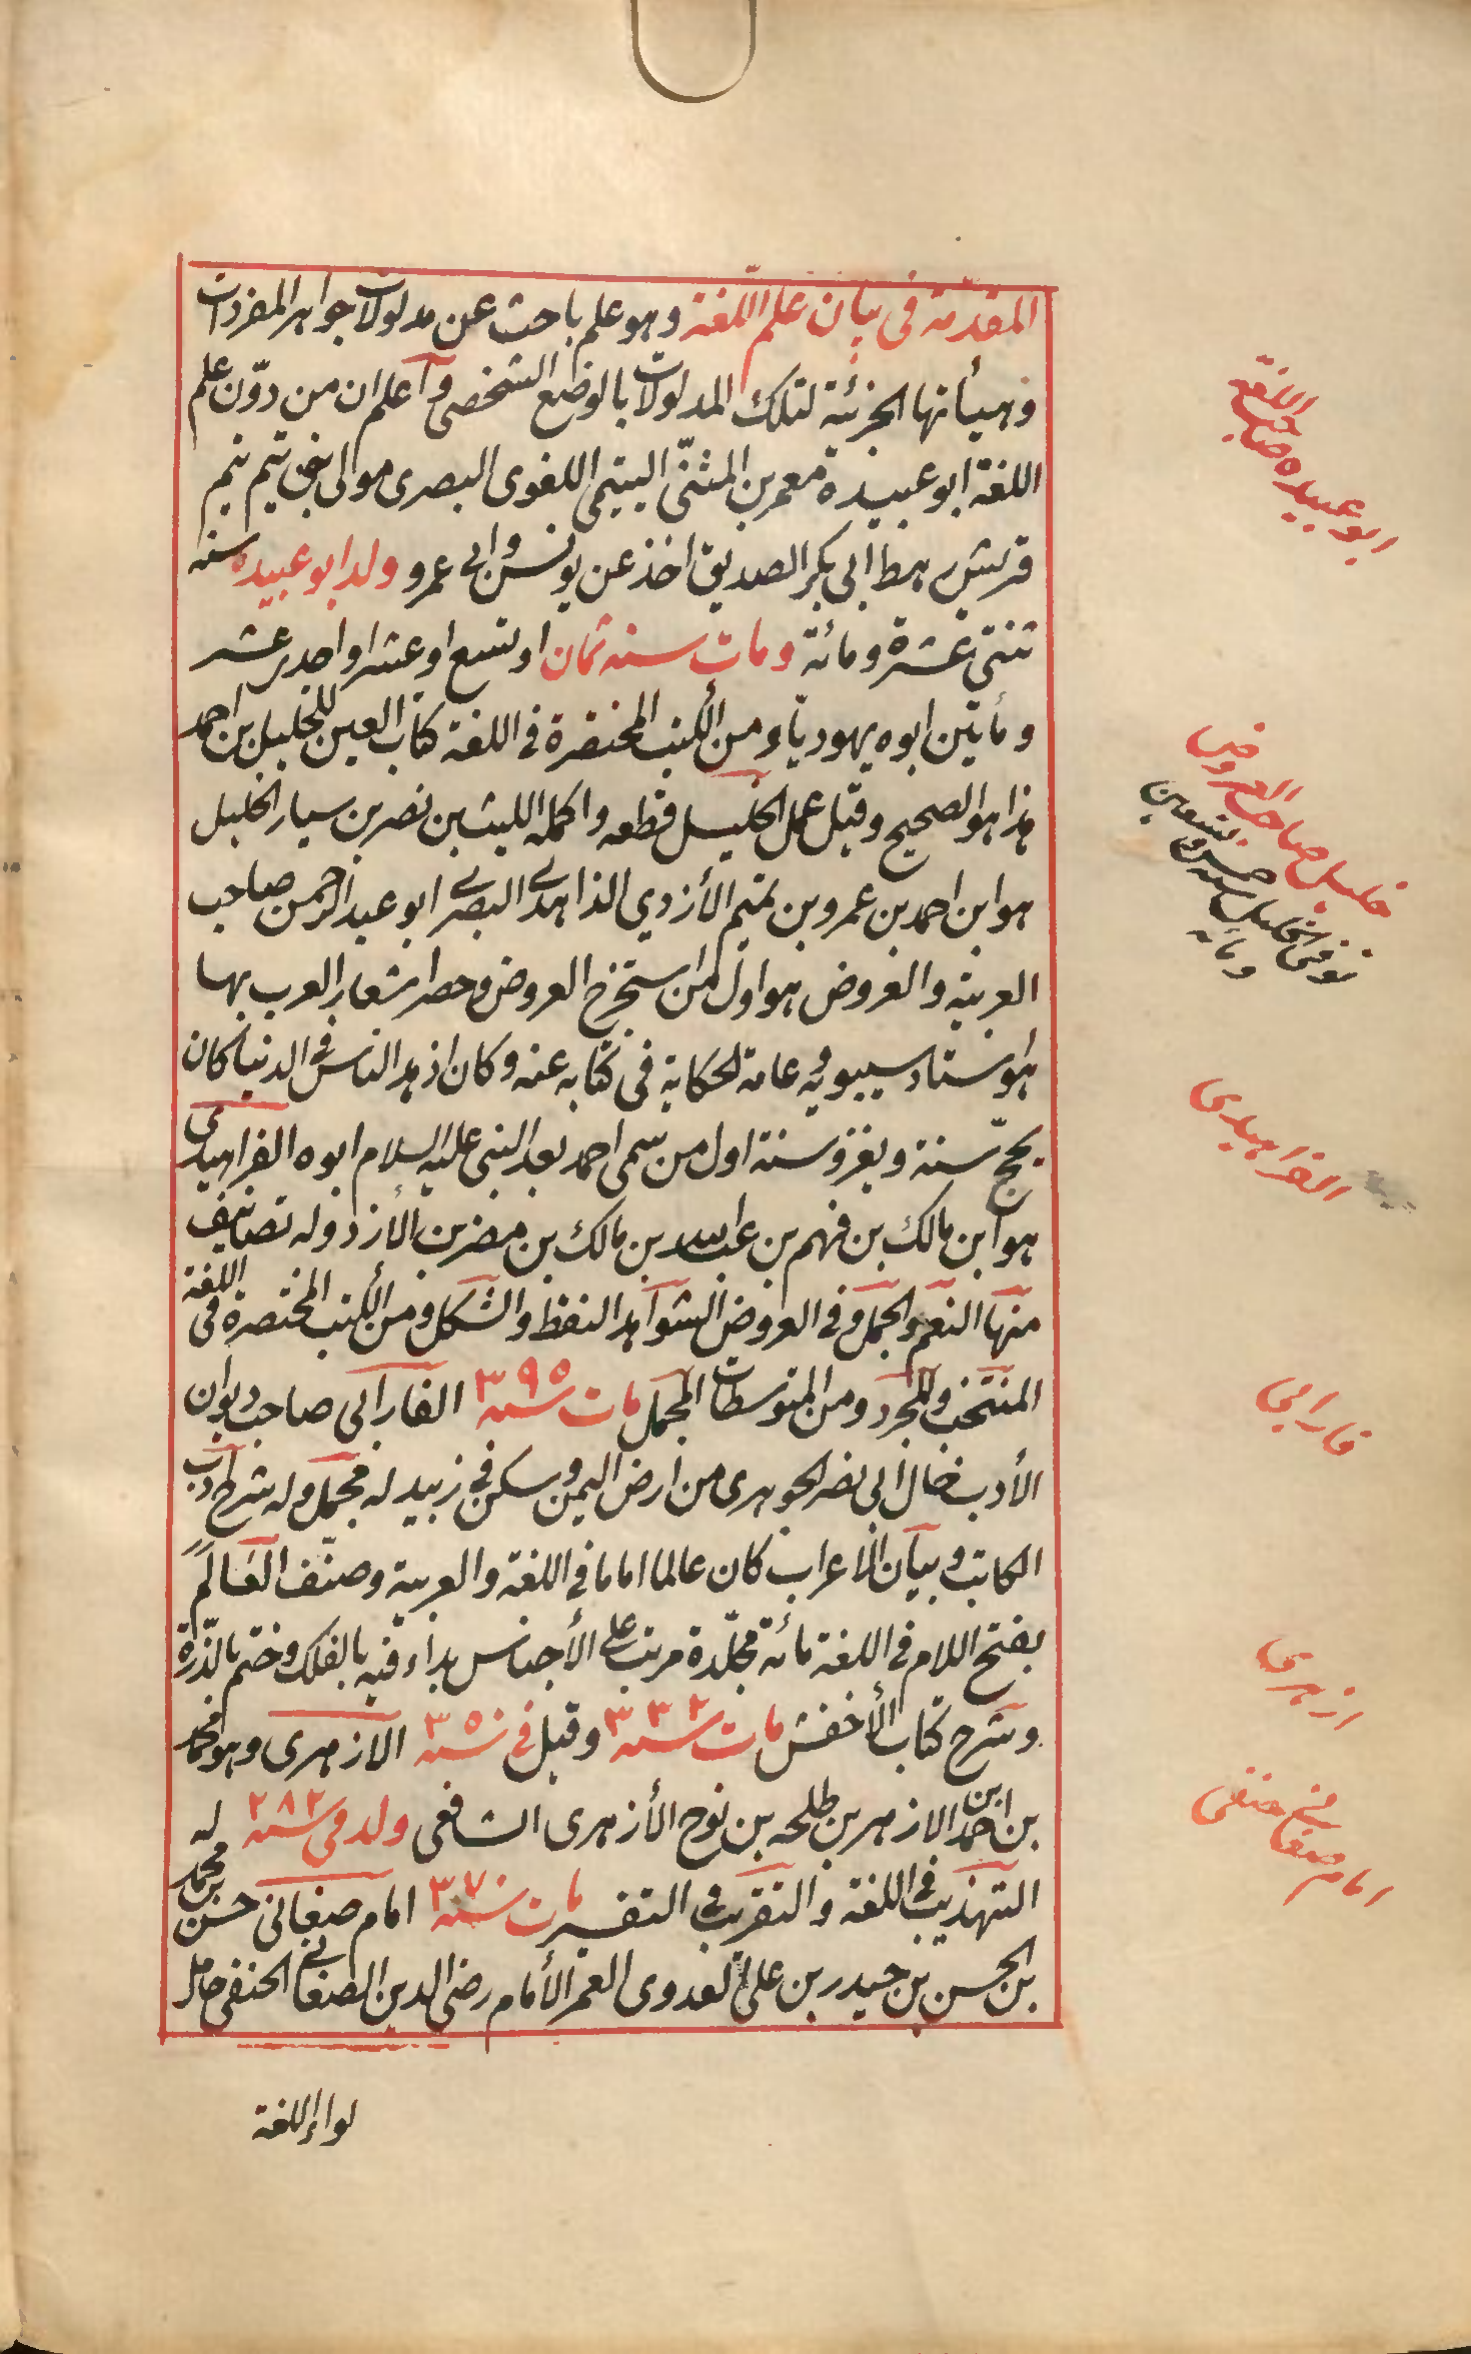 المقدّمة فى بيان علم اللّغة وهو علم باحث عن مدلولات جواهر المفردات
وهيأتها الجزئية لتلك المدلولات بالوضع الشخصى واعلم ان من دوّن علم
اللغة ابو عبيدة معمر بن المثنّى التيمى اللغوى البصرى مولى بنى تيم تيم
قريش رهط ابى بكر الصديق اخذ عن يونس وابى عمرو ولد ابو عبيده سنه
ثنتى عشرة ومائة ومات سنه ثمان او تسع او عشر او احدى عشر
ومأتين ابوه يهوديّا ومن الكتب المختصرة فى اللغة كتاب العين للخليل بن احمد
هذا هو الصحيح وقيل عمل الخليل قطعه واكمله الليث بن نصر بن سيار الخليل
هو ابن احمد بن عمرو بن تميم الأزدي الذاهدى البصرى ابو عبد الرحمن صاحب
العربية والعروض هو اول من استخرج العروض وحصر اشعار العرب بها
هو استاد سيبويه وعامة الحكاية فى كتابه عنه وكان ازهد الناس فى الدنيا كان
يحجّ سنة ويغزو سنة اول من سمى احمد بعد النبى عليه السلام ابوه الفراهيدى
هو ابن مالك بن فهم بن عبد الله بن مالك بن مضر بن الأزد وله تصانيف
منها النعم والجمل وفى العروض الشواهد النقط والشكل ومن الكتب المختصرة فى اللغة
المنتخب والمجرد ومن المتوسطات المجمل مات سنه ٣٩٥ الفارابى صاحب ديوان
الأدب خال ابى نصر الجوهرى من ارض اليمن وسكن فى زبيد له مجمل وله شرح ادب
الكاتب وبيان الأعراب كان عالما اماما فى اللغة والعربية وصنّف العالم
بفتح اللام فى اللغة مائة مجلّدة مرتب على الأجناس بداء فيه بالفلك وختم بالذّرة
وشرح كتاب الأخفش مات سنه ٣٣٢ وقيل فى سنه ٣٥٠ الازهرى وهو محمد
بن احمد ابن الازهر بن طلحه بن نوح الأزهرى الشافعى ولد فى سنه ٢٨٢ له
التهذيب فى اللغة والتقريب فى التفسير مات سنه ٣٧٠ امام صغانى حسن بن محمد
بن الحسن بن حيدر بن على العدوى العمر الأمام رضى الدين الصغانى الحنفى حامل
لواء اللغة
ابو عبيده صاحب اللغة
خليل صاحب العروض
توفى الخليل سنه خمس وتسعين
ومائه
الفراهيدى
فارابى
ازهرى
امام صغانى حنفى